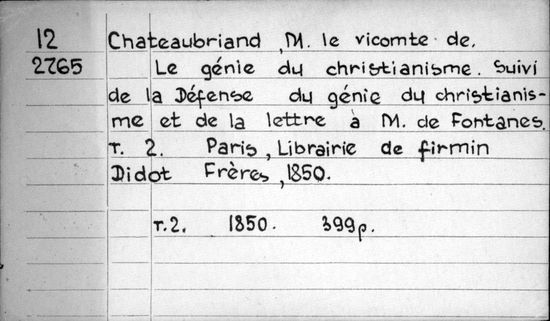 12 Chateaubriand, M. le vicomte de.
2765 Le génie du christianisme. Suivi
de la Défense du génie du christianis-
me et de la lettre à M. de Fontanes.
T. 2. Paris, Librairie de firmin
Didot Frères, 1850.
T. 2. 1850. 399p.